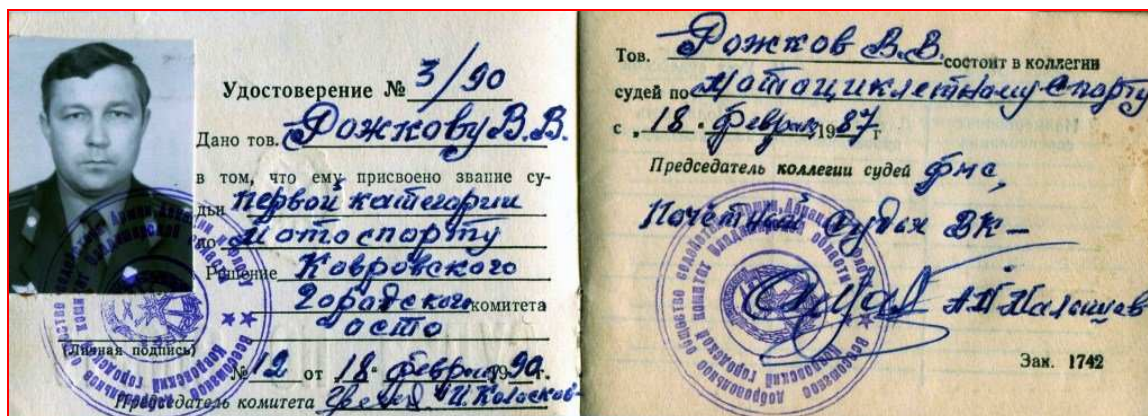 Удостоверение № 3/90
Дано тов. Рожкову В.В.
в том, что ему присвоено звание су-
дьи первой категории
по мотоспорту
Решение Ковровского
городского комитета
(Личная подпись)
№ 12 от „18“ февраля 1990 г.
Председатель комитета
Тов. Рожков В.В. состоит в коллегии
судей по мотоциклетному спорту
с „18“ февраля 1987 г
Председатель коллегии судей ФМС,
Почётный судья ВК –
А.П. Мальцев
Зак. 1742